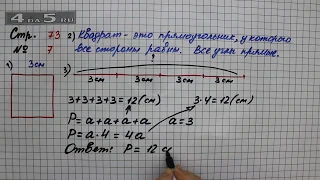 4DA5.RU
Стр. 73
№ 7
2) Квадрат - это прямоугольник, у которого
все стороны равны. Все углы прямые.
1) 3см
3)
?
3см 3см 3см 3см
3+3+3+3=12(см) 3·4=12(см)
P=a+a+a+a a=3
P=a·4=4a
Ответ: P=12 см